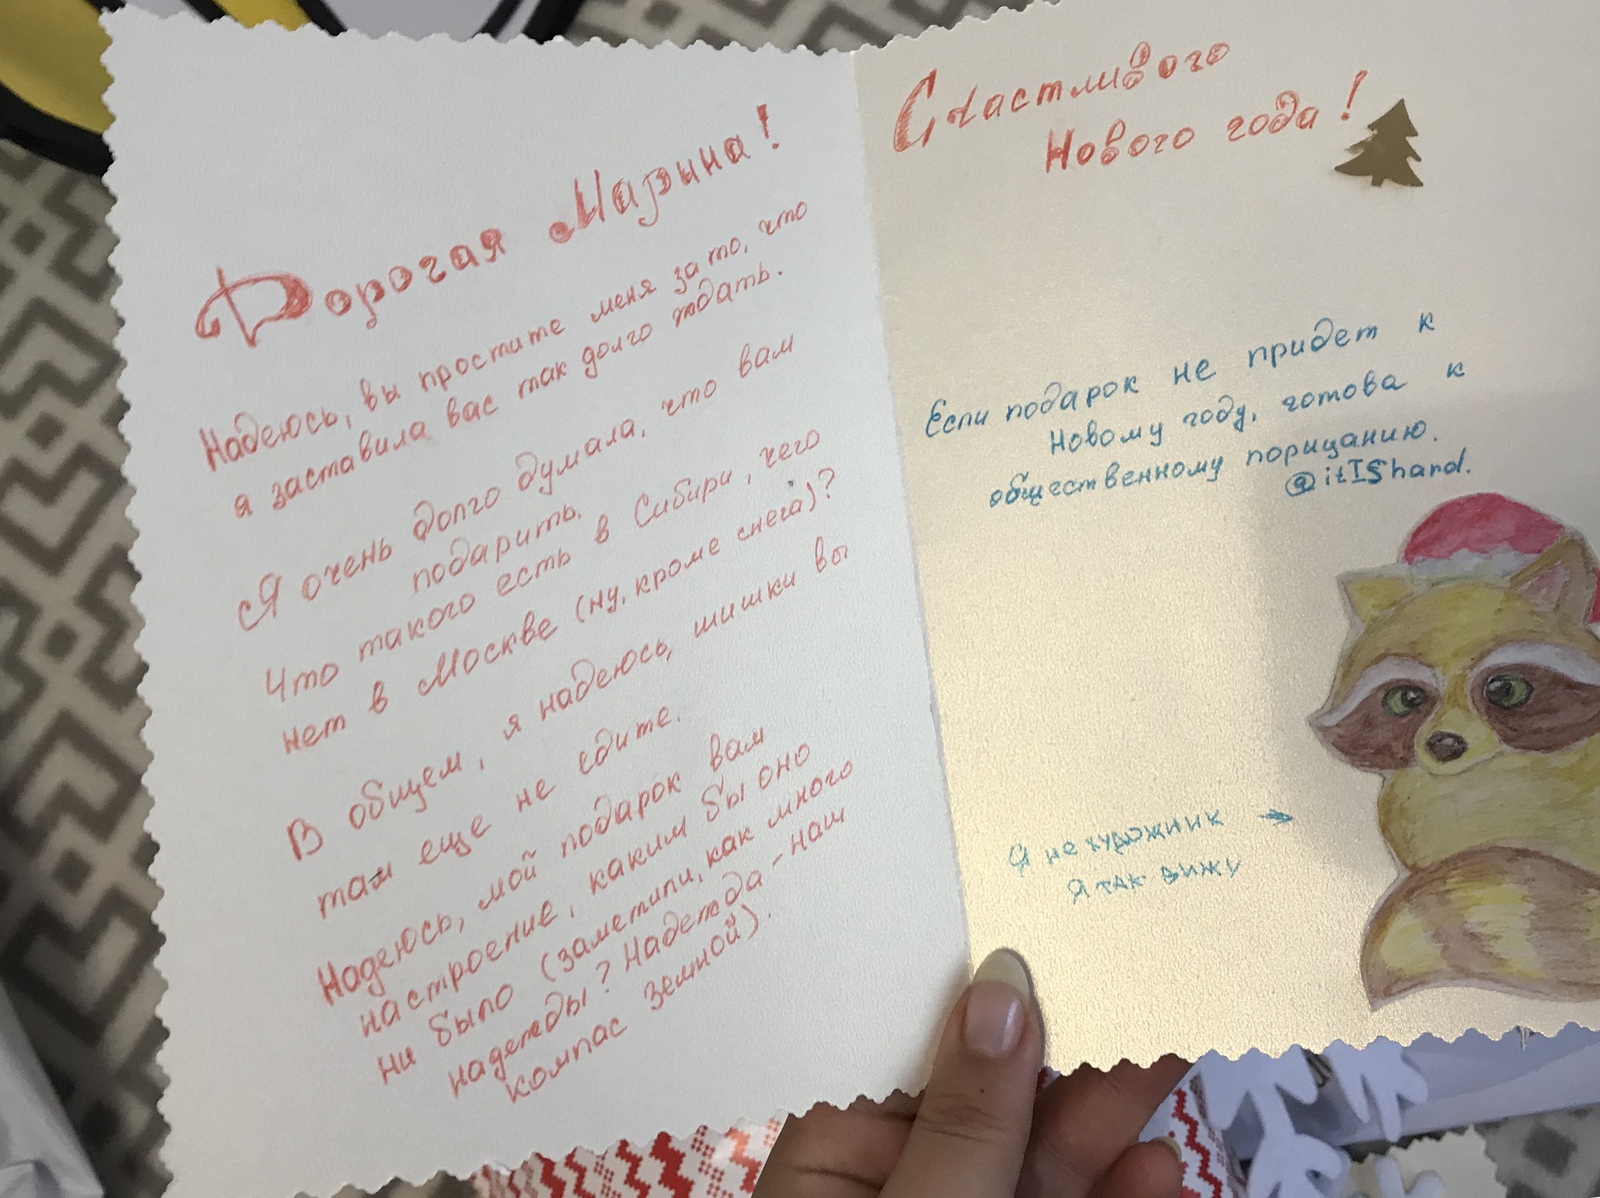 Дорогая Марина!
Надеюсь, вы простите меня за то, что
я заставила вас так долго ждать.
Я очень долго думала, что вам
подарить.
Что такого есть в Сибири, чего
нет в Москве (ну, кроме снега)?
В общем, я надеюсь, шишки вы
там еще не едите.
Надеюсь, мой подарок вам
настроение, каким бы оно
ни было (заметили, как много
надежды? Надежда - наш
компас земной).
Счастливого
Нового года!
Если подарок не придет к
Новому году, готова к
общественному порицанию.
@itIShand.
Я не художник →
Я так вижу